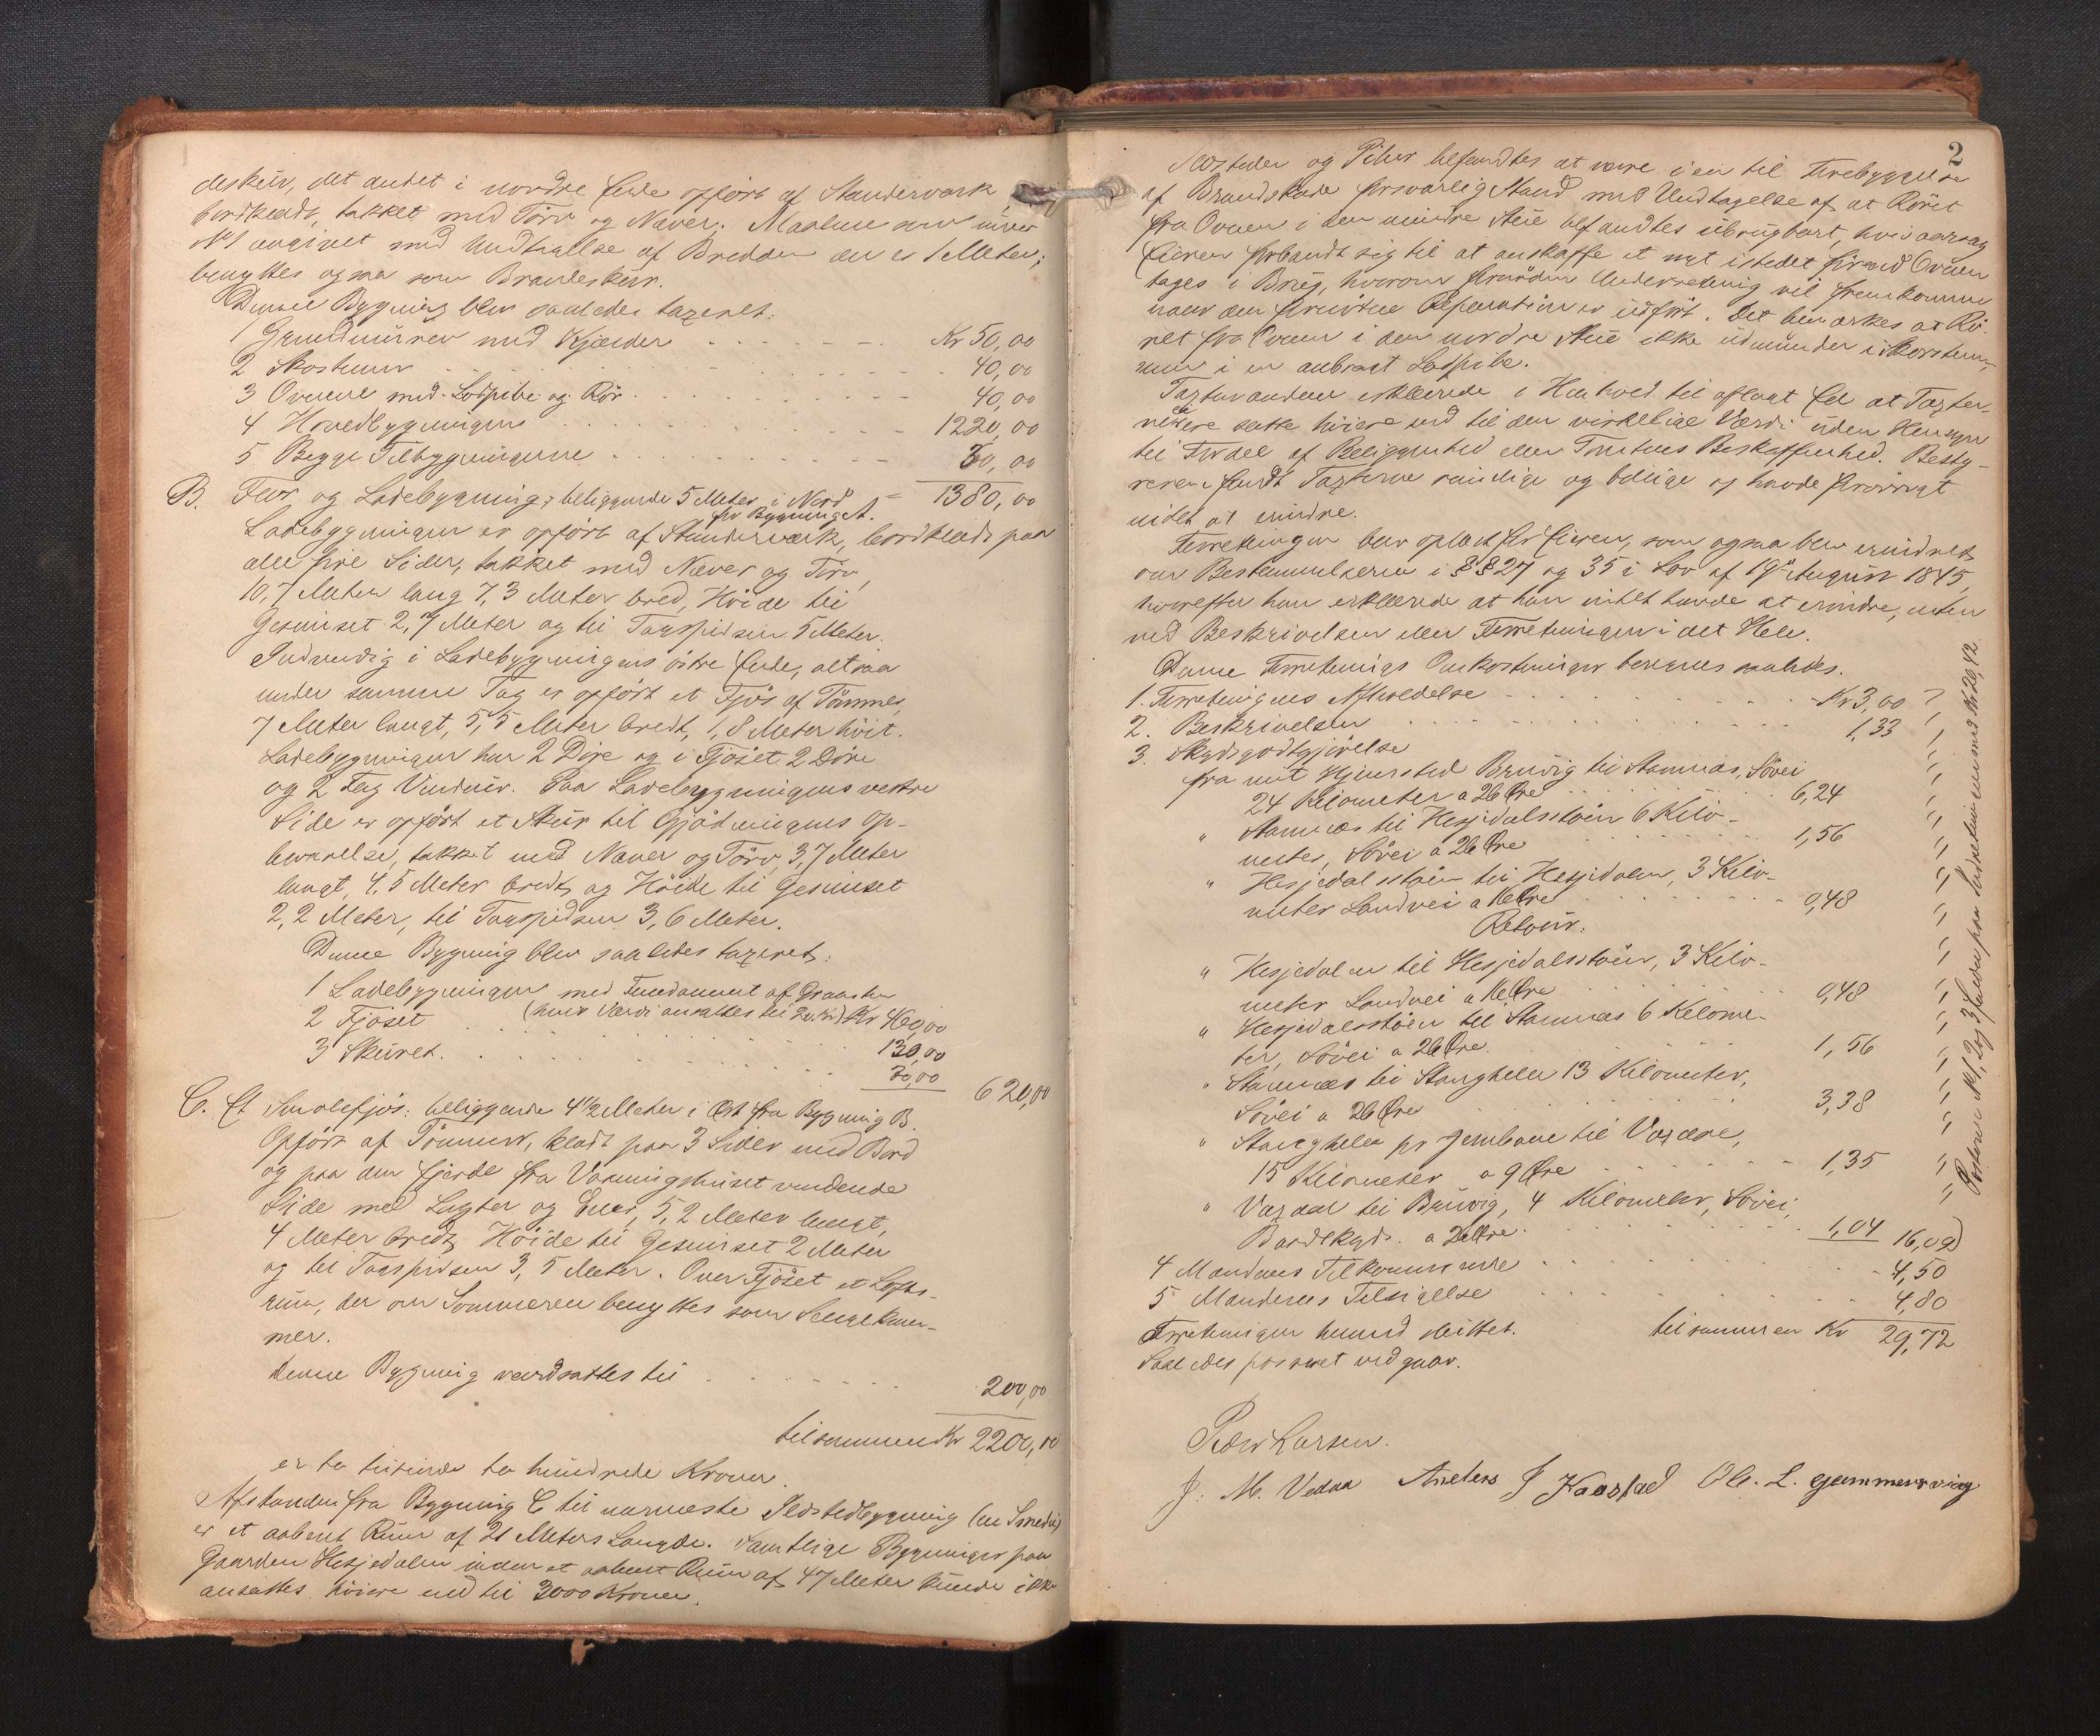 deskur, det andet i nordre Ende opført af Standerværk
bordklædt, tækket med Törv og Næver. Maalene som under
No 1 angivet med Undtagelse af Bredden der er 1 Meter,
benyttes ogsaa som Brændeskur.
Denne Bygning blev saaledes taxeret:
1 Grundmuren med Kjælder Kr 50,00
2 Skorstenen 40,00
3 Ovnene med Lodpibe og Rör 40,00
4 Hovedbygningen 1220,00
5 Begge Tilbygningerne 30,00
1380,00
B. Flor og Ladebygning, beliggende 5 Meter i Nord
fra Bygning A.
Ladebygningen er opført af Standerværk, bordklædt paa
alle fire Sider, tækket med Næver og Törv,
10,7 Meter lang 7,3 Meter bred, Höide til
Gesimset 2,7 Meter og til Tagspidsen 5 Meter.
Indvendig i Ladebygningens östre Ende, altsaa
under samme Tag er opført et Fjös af Tömmer,
7 Meter langt, 5,5 Meter bredt, 1,8 Meter höit.
Ladebygningen har 2 Döre og i Fjöset 2 Döre
og 2 Fag Vinduer. Paa Ladebygningens vestre
Side er opfört et Skur til Gjödningens op-
bevarelse, tækket med Næver og Törv, 3,7 Meter
langt, 4,5 Meter bredt og Höide til Gesimset
2,2 Meter, til Tagspidsen 3,6 Meter.
Denne Bygning blev saaledes taxeret:
1 Ladebygningen med Fundament af Graasten
(hvis Værdi ansattes til 20 Kr) Kr 460,00
2 Fjöset 130,00
3 Skuret. 30,00
620,00
C. Et Smalefjös: beliggende 4 1/2 Meter i Öst fra Bygning B.
Opfört af Tömmer, klædt paa 3 Sider med Bord
og paa den fjerde fra Vaaningshuset vendende
Side med Lægter og Ener, 5,2 Meter langt,
4 Meter bredt, Höide til Gesimset 2 Meter
og til Tagspidsen 3,5 Meter. Over Fjöset et Lofts-
rum, der om Sommeren benyttes som Sengekam-
mer.
Denne Bygning værdsattes til 200,00
tilsammen Kr 2200,00
er to tusinde to hundrede Kroner.
Afstanden fra Bygning C til nærmeste Ildstedbygning (en Smedie)
er et aabent Rum af 21 Meters Længde. Samtlige Bygninger paa
Gaarden Hesjedalen inden et aabent Rum af 47 Meter kunde ikke
ansættes höiere end til 3000 Kroner.
2
Ildsteder og Piber befandtes at være i en til Forebyggelse
af Brandskade forsvarlig Stand med Undtagelse af at Röret
fra Ovnen i den nordre Stue befandtes ubrugbart, hvisaarsag
Eieren forbandt sig til at anskaffe et nyt istedet förend Ovnen
tages i Brug, hvorom fornöden Underretning vil fremkomme
naar den fornödne Reparation er udfört. Det bemærkes at Rö-
ret fra Ovnen i den nordre Stue ikke udmunder i Skorstenen,
men i en anbragt Lodpibe.
Taxtmændene erklærede i Henhold til aflagt Ed at Taxter-
ne ikke satte höiere end til den virkelige Værdi uden Hensyn
til Fordel af Beliggenhed eller Tomtens Beskaffenhed. Besty-
reren fandt Taxterne rimelige og billige og havde forövrigt
intet at erindre.
Forretningen blev oplæst for Eieren, som ogsaa blev erindret
om Bestemmelserne i §§ 27 og 35 i Lov af 19de August 1845,
hvorefter han erklærede at han intet havde at erindre, enten
ved Beskrivelsen eller Forretningen i det Hele.
Denne Forretnings Omkostninger beregnes saaledes.
1. Forretningens Afholdelse Kr 3,00
2. Beskrivelsen 1,33
3. Skydsgodtgjörelse
fra mit Hjemsted Bruvig til Stamnæs, Sövei
24 Kilometer a 26 Øre 6,24
" Stamnæs til Hesjedalsstöen 6 Kilo-
meter, Sövei a 26 Øre 1,56
" Hesjedalsstöen til Hesjedalen, 3 Kilo-
meter Landvei a 16 Øre 0,48
Retour.
" Hesjedalen til Hesjedalsstöen, 3 Kilo-
meter Landvei a 16 Øre 0,48
" Hesjedalsstöen til Stamnæs 6 Kilome-
ter, Sövei a 26 Øre 1,56
" Stamnæs til Stanghelle 13 Kilometer,
Sövei a 26 Øre 3,38
" Stanghelle pr Jernbane til Vaxdal,
15 Kilometer a 9 Øre 1,35
" Vaxdal til Bruvig, 4 Kilometer, Sövei,
Baadskyds. a 26 Øre 1,04 16,09
4 Mændenes Tilkommende 4,50
5 Mændenes Tilsigelse 4,80
Forretningen hermed sluttet. tilsammen Kr 29,72
Saaledes passeret vedgaar.
Peder Larsen.
J. M. Vedaa Anders J Kaarstad Ole. L. gammersvig
Posterne No 1, 2 og 3 med Kr 20,42